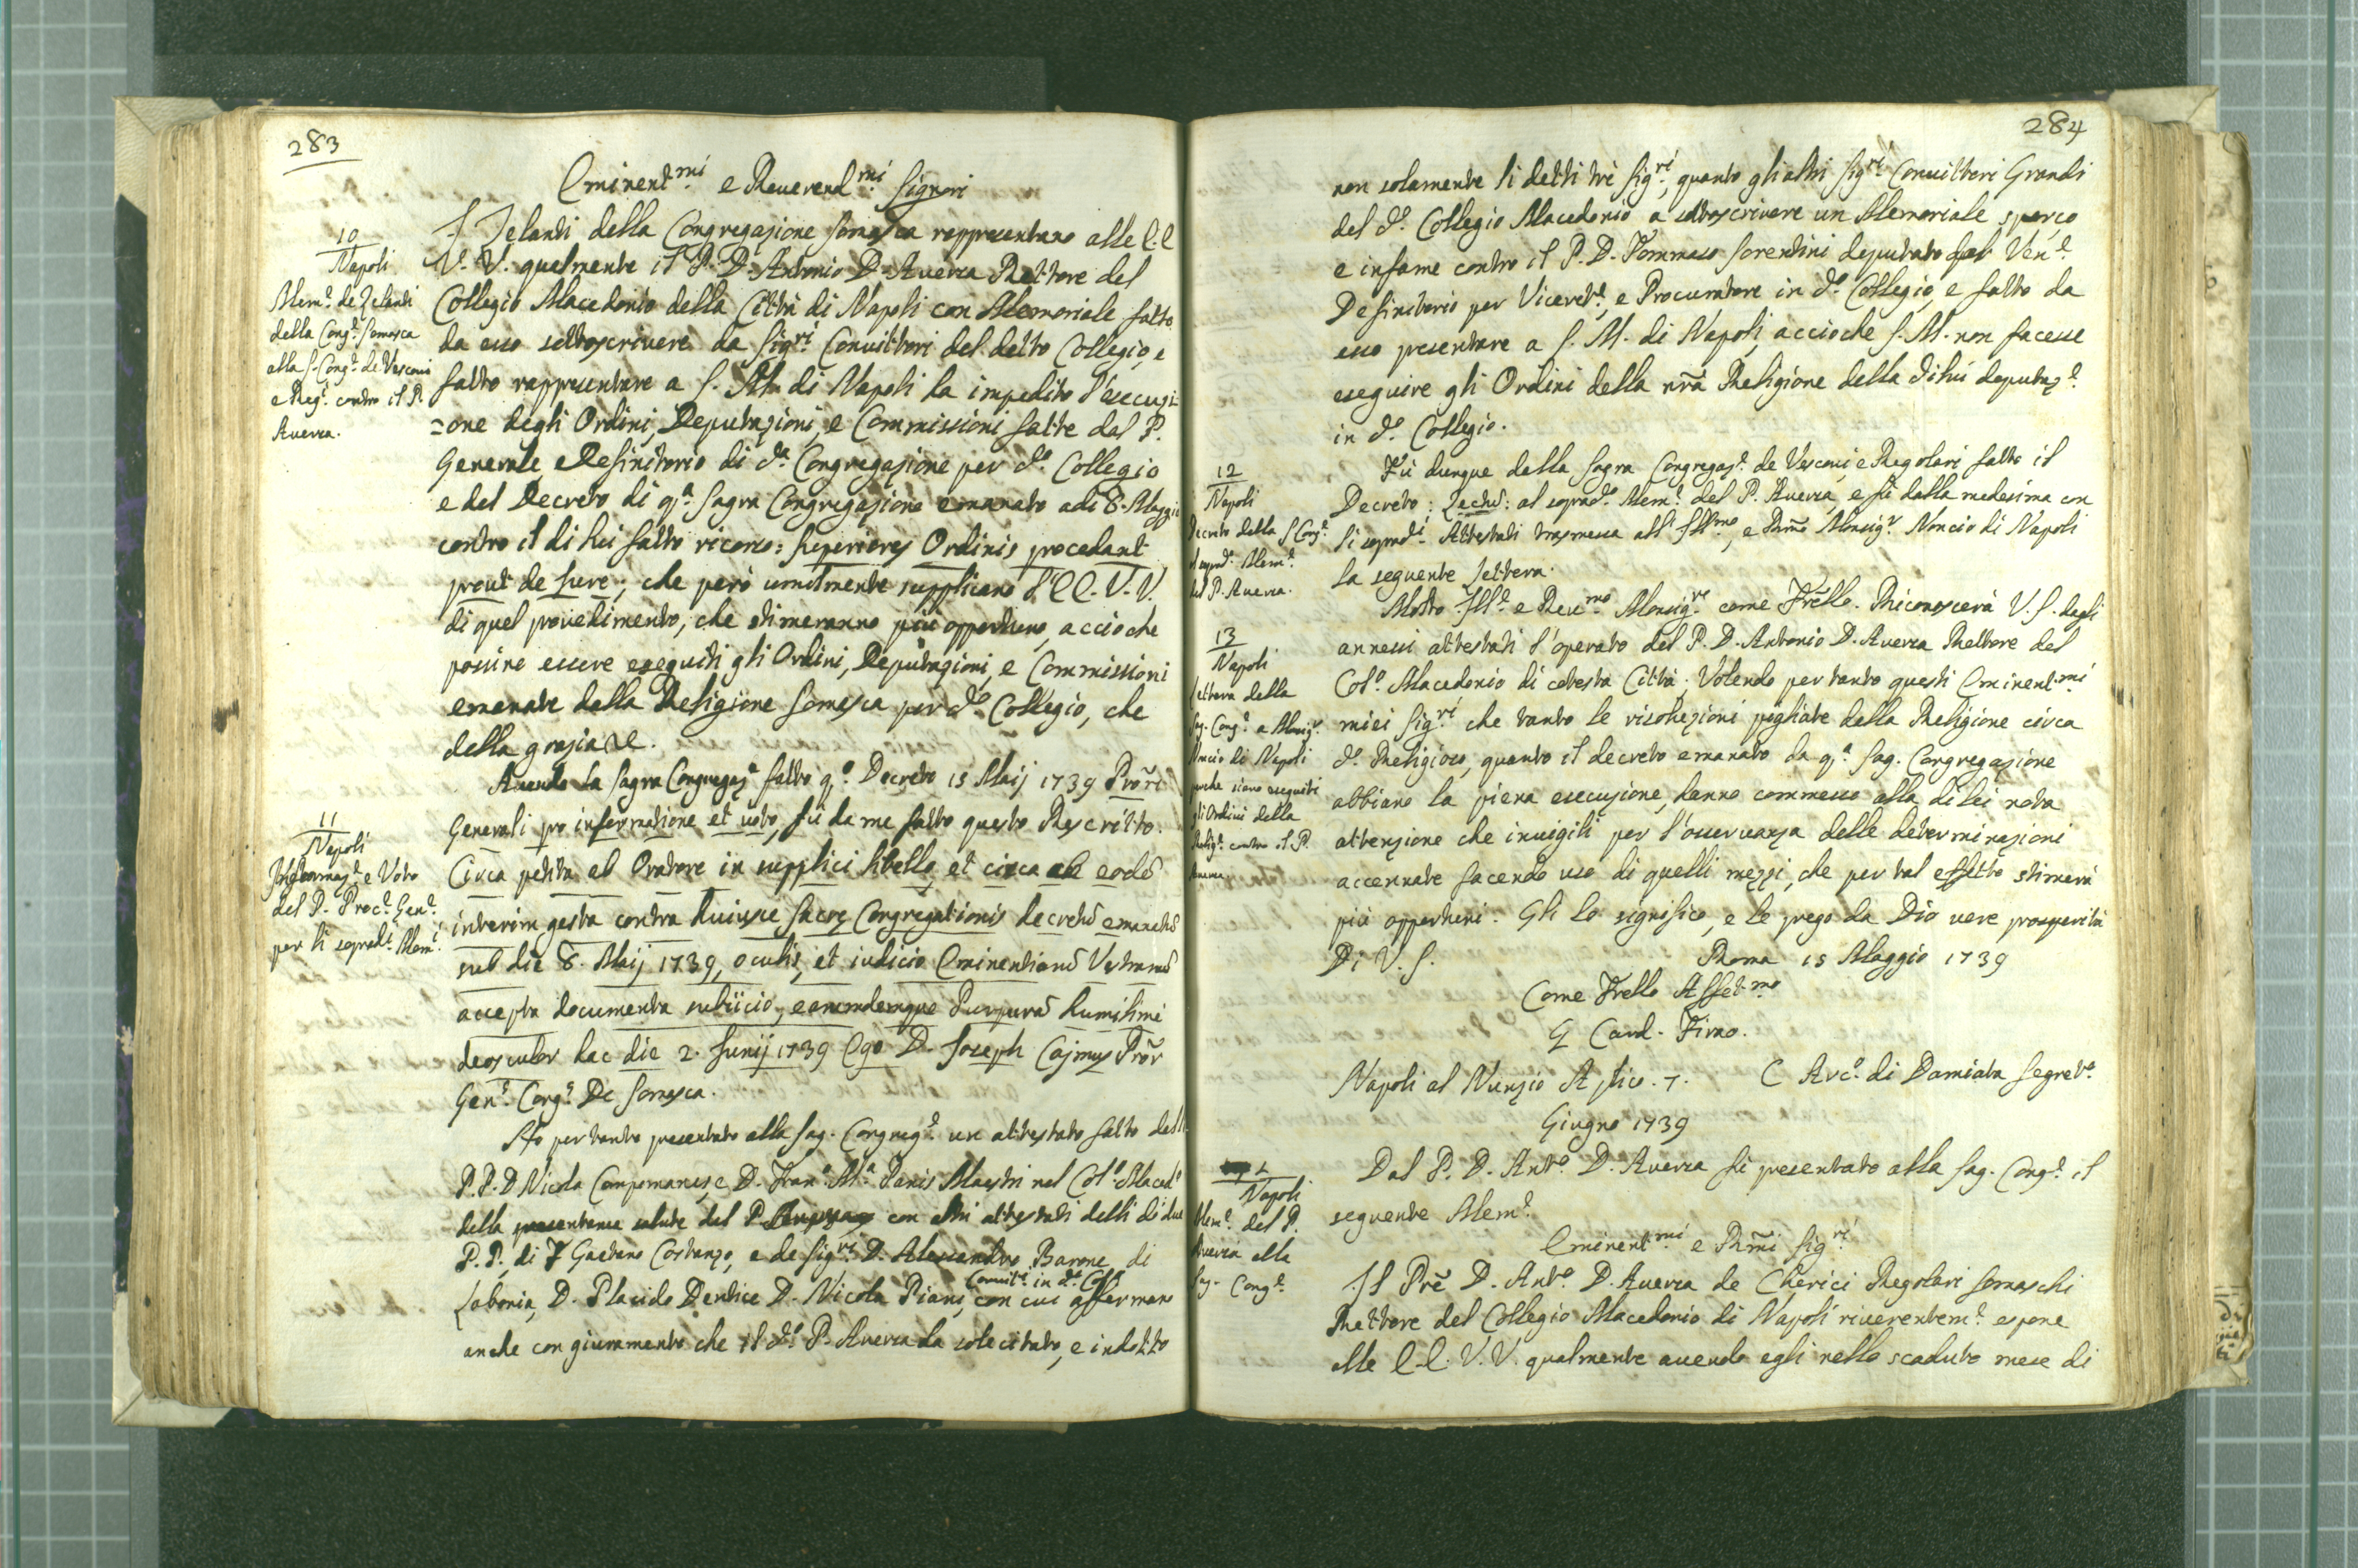 283
Eminent.mi e Reverend.mi Signori
10
Napoli
Mem.e de Zelanti
della Cong.e Somasca
alla S. Cong.e de Vescovi
e Reg.i contro il P.
Aversa.
I Zelanti della Congregazione Somasca rappresentano alle E.E
V.V. qualmente il P. D. Antonio D. Aversa Rettore del
Collegio Macedonio della Città di Napoli con Memoriale fatto
da esso sottoscrivere da Sig.ri Convittori del detto Collegio, e
fatto rappresentare a S. M. di Napoli ha impedito l'esecuzi
=one degli Ordini, Deputazioni, e Commissioni fatte dal P.
Generale e Definitorio di d.a Congregazione per d.o Collegio
e del Decreto di q.a Sagra Congregazione emanato adi 8. Maggio
contro il di lui fatto ricorso: Superiores Ordinis procedant
prout de Jure; che però umilmente supplicano l'E E. V. V.
di quel provedimento, che stimeranno più opportuno, accioche
possino essere eseguiti gli Ordini, Deputazioni, e Commissioni
emanate dalla Religione Somasca per d.o Collegio, che
della grazia &c.
Avendo la Sagra Congregaz.e fatto q.o Decreto 15 Maij 1739 Prõri
11
Napoli
Informaz.e e Voto
del P. Proc.e Gen.e
per li soprad.i Mem.i
Generali pro informatione et voto, fù da me fatto questo Rescritto.
Circa petita ab Oratore in supplici libello, et circa ab eodẽ
interim gesta contra huiusce Sacrę Congregationis decretũ emanatũ
sub die 8. Maij 1739, oculis, et iudicio Eminentiarũ Vestrarũ
accepta documenta subiicio, earumdemque Purpurã humilime
deosculor hac die 2. Junij 1739 Ego D. Joseph Cajmus Prõr
Gen.s Cong.s De Somasca.
Hò per tanto presentato alla Sag. Congreg.e un attestato fatto dalli
P.P. D Nicola Campomanes, e D. Fran.o M.a Panis Maestri nel Col.o Maced.o
della salute del P. con altri attestati delli di due
P.P., di F Gaetano Costanzo, e de Sig.ri D. Alessandro Barone di
Convit.i in d.o Coll.
Laboria, D. Placido Dentice D. Nicola Piani, con cui affermano
anche con giuramento che il d.o P. Aversa ha solecitato, e indotto
284
non solamente li detti trè Sig.ri, quanto gli altri Sig.ri Convittori Grandi
del d.o Collegio Macedonio a sottoscrivere un Memoriale sporco
e infame contro il P. D. Tommaso Sorentini deputato dal Ven.e
Definitorio per Viceret.e, e Procuratore in d.o Collegio, e fatto da
esso presentare a S. M. di Napoli, accioche S. M. non facesse
eseguire gli Ordini della nrã Religione della di lui deputaz.e
in d.o Collegio.
12
Napoli
Decreto della S Cong.e
al soprad.o Mem.e
del P. Aversa.
Fù dunque dalla Sagra Congregaz.e de Vescovi, e Regolari fatto il
Decreto; Lectũ: al soprad.o Mem.e del P. Aversa, e fù dalla medesima con
li soprad.i Attestati trasmessa all' Ill.mo, e Rmo Monsig.r Noncio di Napoli
la seguente lettera.
13
Napoli
Lettera della
Sag. Cong.e a Monsig.r
Nuncio di Napoli
perche siano eseguiti
gli Ordini della
Relig.e contro il P.
Aversa
Molto Ill.e e Rev.mo Monsig.re come Frello. Riconoscerà V. S. dagli
annessi attestati l'operato del P. D. Antonio D. Aversa Rettore del
Col.o Macedonio di cotesta Città; Volendo per tanto questi Eminent.mi
miei Sig.ri che tanto le risoluzioni pigliate dalla Religione circa
d.o Religioso, quanto il decreto emanato da q.a Sag. Congregazione
abbiano la piena esecuzione, hanno commesso alla di lei nota
attenzione che invigili per l'osservanza delle determinazioni
accennate facendo uso di quelli mezzi, che per tal effetto stimerà
più opportuni. Gli lo significo, e le prego da Dio vere prosperità
Di V. S. Roma 15 Maggio 1739
Come Frello Affet.mo
G Card. Firao.
Napoli al Nunzio Aplico. 7. C Arc.o di Damiata Segret.o
Giugno 1739
1
Napoli
Mem.e del P.
Aversa alla
Sag. Cong.e
Dal P. D. Ant.o D. Aversa fù presentato alla Sag. Cong.e il
seguente Mem.e
Eminent.mi e Rmi Sig.ri
Il Prẽ D. Ant.o D. Aversa de Chierici Regolari Somaschi
Rettore del Collegio Macedonio di Napoli riverentem.e espone
alle E.E. V. V. qualmente avendo egli nello scaduto mese di